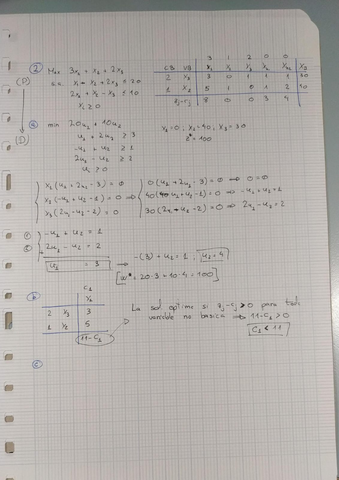 ② Max 3x₁ + x₂ + 2x₃
s.a. x₁ - x₂ + 2x₃ ≤ 20
2x₁ + x₂ - x₃ ≤ 10
xᵢ ≥ 0
(P)
(D)
3 1 2 0 0
CB VB x₁ x₂ x₃ x₄ x₅ x_B
2 x₃ 3 0 1 1 1 30
1 x₂ 5 1 0 1 2 40
zj-cj 8 0 0 3 4
ⓐ min 20u₁ + 10u₂
u₁ + 2u₂ ≥ 3
-u₁ + u₂ ≥ 1
2u₁ - u₂ ≥ 2
uᵢ ≥ 0
x₁=0; x₂=40; x₃=30
z*=100
x₁(u₁ + 2u₂ - 3) = 0 0(u₁ + 2u₂ - 3) = 0 ⇒ 0=0
x₂(-u₁ + u₂ - 1) = 0 ⇒ 40(-u₁ + u₂ - 1) = 0 ⇒ -u₁ + u₂ = 1
x₃(2u₁ - u₂ - 2) = 0 30(2u₁ - u₂ - 2) = 0 ⇒ 2u₁ - u₂ = 2
-u₁ + u₂ = 1
2u₁ - u₂ = 2
u₁ = 3 → -(3) + u₂ = 1; u₂ = 4
[w* = 20·3 + 10·4 = 100]
ⓑ C₁
x₁
2 x₃ 3
1 x₂ 5
11-C₁
La sol óptima si zj-cj > 0 para toda
variable no básica ⇒ 11-C₁ > 0
C₁ < 11
ⓒ